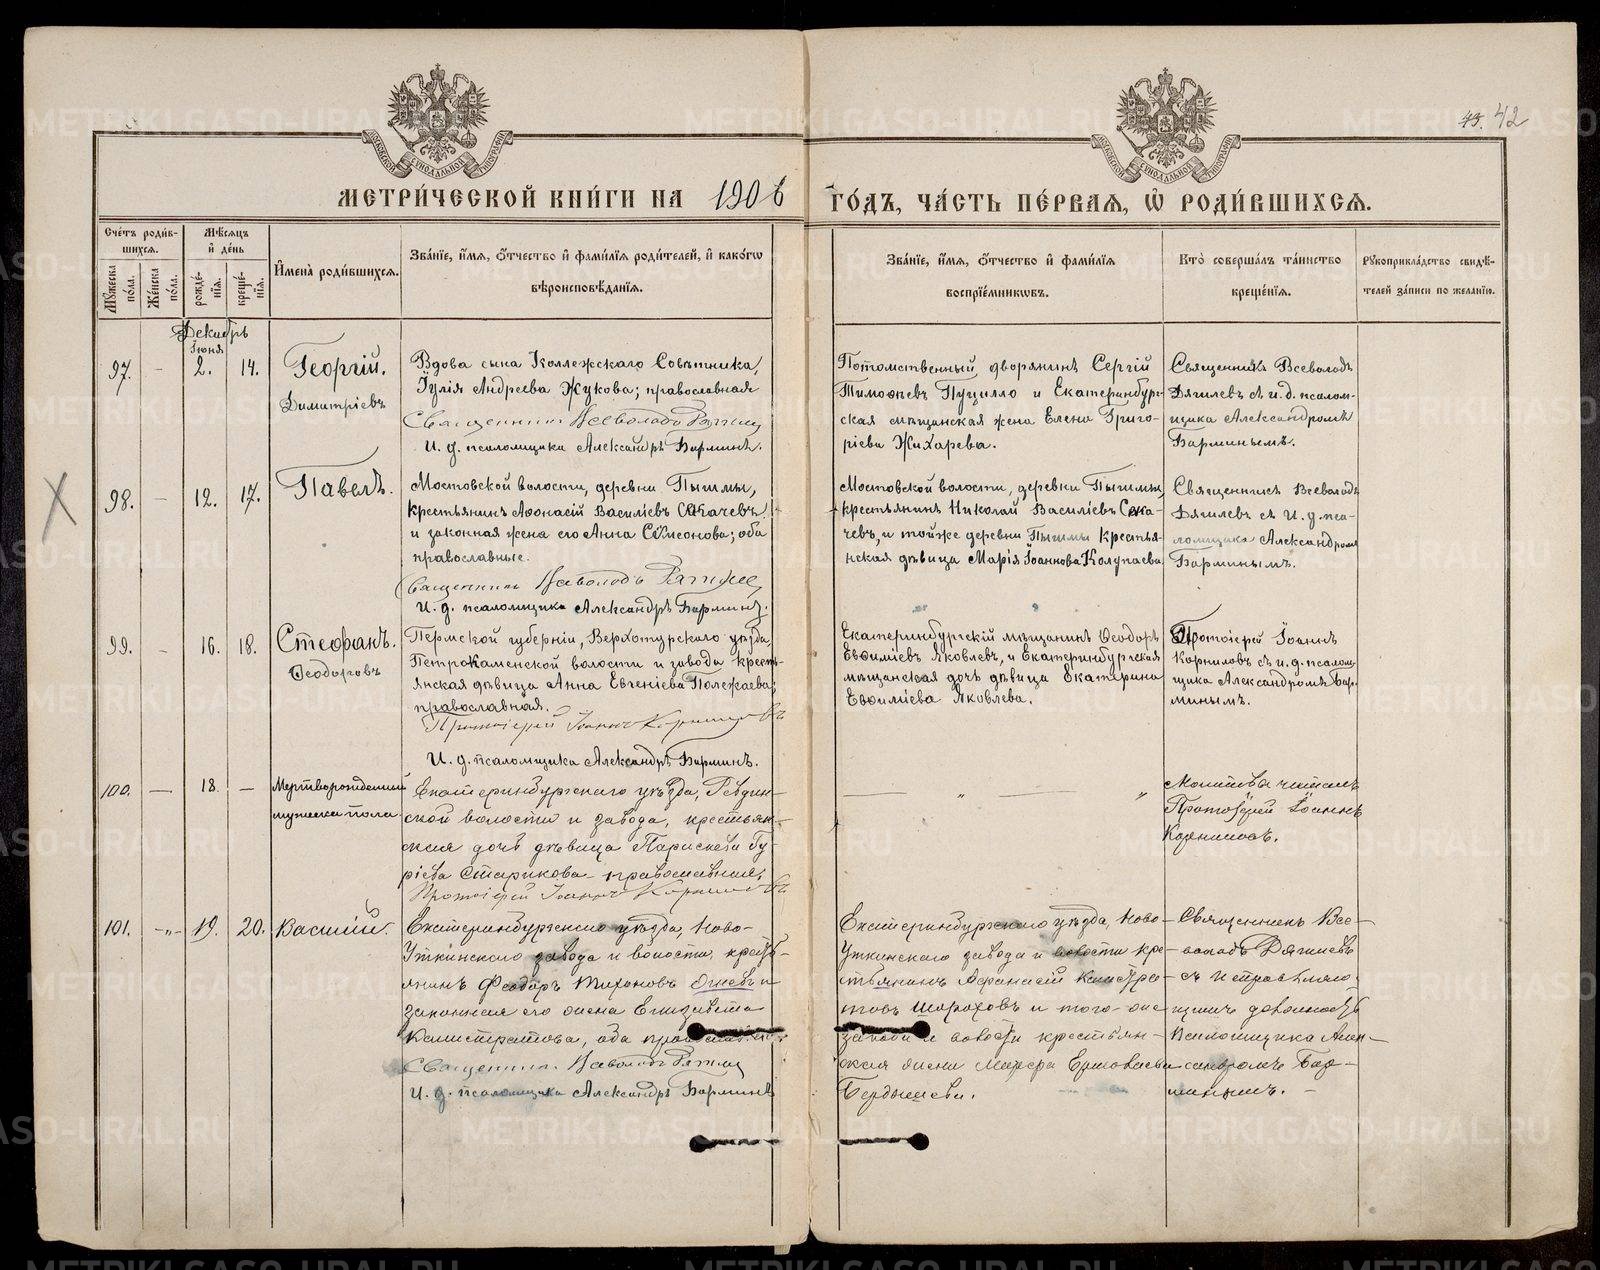 43. 42
МЕТРИ́ЧЕСКОЙ КНИ́ГИ НА 1906 ГО́ДЪ, ЧА́СТЬ ПЕ́РВАЯ, Ѿ РОДИ́ВШИХСЯ.
Сче́тъ роди́вшихся.
Мꙋжеска по́ла.
Же́нска по́ла.
Мѣ́сяцъ и҆ де́нь
рожде́нїѧ.
креще́нїѧ.
И҆мена̀ роди́вшихсѧ.
Зва́нїе, и҆́мѧ, ѻ҆́тчество и҆ фами́лїѧ роди́телей, и҆ како́гѡ
вѣроисповѣ́данїѧ.
Зва́нїе, и҆́мѧ, ѻ҆́тчество и҆ фами́лїѧ
воспрїе́мникѡвъ.
Кто̀ соверша́лъ та́инство
креще́нїѧ.
Рꙋкоприкла́дство свидѣ́-
телей за́писи по жела́нїю.
Декабрь
Іюня
97. - 2. 14. Георгій.
Димитріевъ
Вдова сына Коллежскаго Совѣтника,
Іулія Андреева Жукова; православная
Священникъ Всеволодъ Дягилевъ
И. д. псаломщика Александръ Барминъ.
Потомственный дворянинъ Сергій
Тимоѳеевъ Пуцилло и Екатеринбург-
ская мѣщанская жена Елена Григо-
ріева Жихарева.
Священникъ Всеволодъ
Дягилевъ съ и. д. псалом-
щика Александромъ
Барминымъ.
98. - 12. 17. Павелъ.
Мостовской волости, деревни Пышмы,
крестьянинъ Аѳонасій Василіевъ Скачевъ
и законная жена его Анна Сѵмеонова; оба
православные.
Священникъ Всеволодъ Дягилевъ
И. д. псаломщика Александръ Барминъ.
Мостовской волости, деревни Пышмы,
крестьянинъ Николай Василіевъ Ска-
чевъ, и тойже деревни Пышмы крестья-
нская дѣвица Марія Іоаннова Колупаева
Священникъ Всеволодъ
Дягилевъ съ И. д. пса-
ломщика Александромъ
Барминымъ.
99. - 16. 18. Стефанъ.
Ѳеодоровъ
Пермской губерніи, Верхотурскаго уѣзда,
Петрокаменской волости и завода кресть-
янская дѣвица Анна Евгеніева Полежаева;
православная.
Протоіерей Іоаннъ Корниловъ
И. д. псаломщика Александръ Барминъ.
Екатеринбургскій мѣщанинъ Ѳеодоръ
Евѳиміевъ Яковлевъ, и Екатеринбургская
мѣщанская дочь дѣвица Екатерина
Евѳиміева Яковлева.
Протоіерей Іоаннъ
Корниловъ съ и. д. псалом-
щика Александромъ Бар-
минымъ.
100. - 18. - Мертворожденный
мужеска пола.
Екатеринбургскаго уѣзда, Ревдин-
ской волости и завода, крестьян-
ская дочь дѣвица Параскева Гу-
ріева Старикова - православная;
Протоіерей Іоаннъ Корниловъ
— „ — „
Молитвы читалъ
Протоіерей Іоаннъ
Корниловъ.
101. -„- 19. 20. Василій.
Екатеринбургскаго уѣзда, Ново-
Уткинскаго завода и волости, кресть-
янинъ Феодоръ Тихоновъ Огневъ и
законная его жена Елизавета
Калистратова, оба православные.
Священникъ Всеволодъ Дягилевъ
И. д. псаломщика Александръ Барминъ
Екатеринбургскаго уѣзда, Ново-
Уткинскаго завода и волости кре-
стьянинъ Афанасій Калистра-
товъ Шороховъ и того-же
завода и волости крестьян-
ская жена Ермолаева
Бердышева.
Священникъ Все-
володъ Дягилевъ
съ Исправляю-
щимъ должность
Псаломщика Алек-
сандромъ Бар-
минымъ.
METRIKI.GASO-URAL.RU